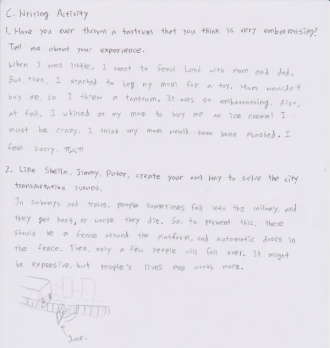 C. Writing Activity
1. Have you ever thrown a tantrum that you think is very embarrassing?
Tell me about your experience.
When I was little, I went to Seoul Land with mom and dad.
But, then, I started to beg my mom for a toy. Mom wouldn't
buy me, so I threw a tantrum. It was so embarrassing. Also,
at fall, I whined at my mom to buy me an ice cream! I
must be crazy. I think my mom would have been shocked. I
feel sorry.
2. Like Sheila, Jimmy, Peter, create your own way to solve the city
transportation issues.
In subways and trains, people sometimes fall into the railway, and
they got hurt, or worse they die. So, to prevent this, there
should be a fence around the platform, and automatic doors in
the fence. Then, only a few people will fall over. It might
be expensive, but people's lives are worth more.
door.